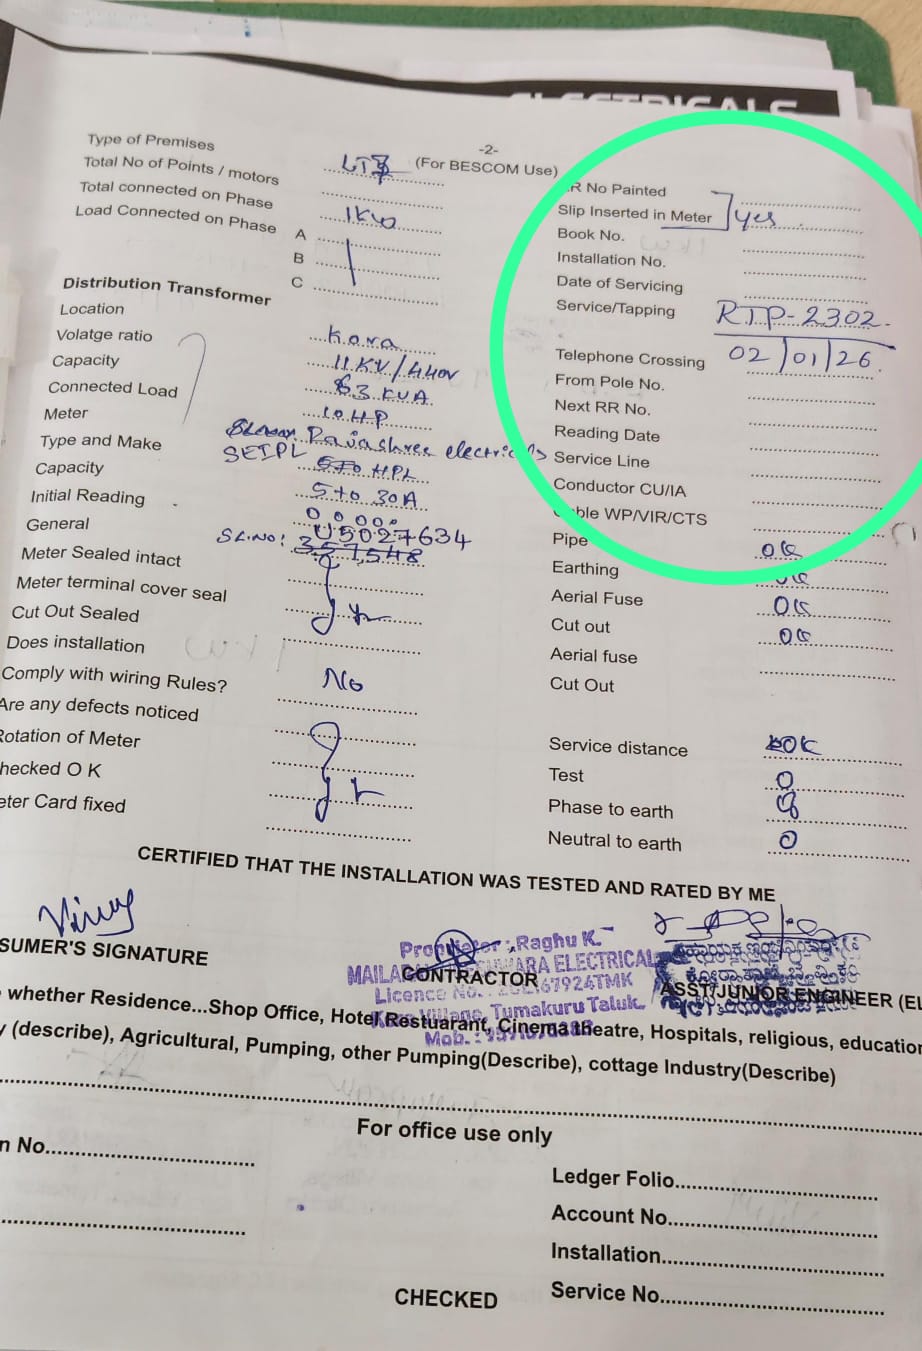 ELECTRICALS
-2-
(For BESCOM Use)
Type of Premises LT3
Total No of Points / motors
Total connected on Phase 1KW
Load Connected on Phase A
B
C
Distribution Transformer
Location Kora
Volatge ratio 11KV/440V
Capacity 63 KVA
Connected Load 10HP
Meter Rajashree electricals
Type and Make SEIPL HPL
Capacity 5 to 30A
Initial Reading 0000
General SL.NO: U5027634
357548
Meter Sealed intact
Meter terminal cover seal
Cut Out Sealed
Does installation
Comply with wiring Rules? No
Are any defects noticed
Rotation of Meter
hecked O K
eter Card fixed
R No Painted
Slip Inserted in Meter yes
Book No.
Installation No.
Date of Servicing
Service/Tapping RTP-2302
Telephone Crossing 02/01/26
From Pole No.
Next RR No.
Reading Date
Service Line
Conductor CU/IA
ble WP/VIR/CTS
Pipe OK
Earthing OK
Aerial Fuse OK
Cut out OK
Aerial fuse
Cut Out
Service distance OK
Test 0
Phase to earth
Neutral to earth 0
CERTIFIED THAT THE INSTALLATION WAS TESTED AND RATED BY ME
SUMER'S SIGNATURE
CONTRACTOR
ASST/JUNIOR ENGINEER (EL
Proprietor : Raghu K.
ELECTRICAL
Licence No. 67924TMK
Village, Tumakuru Taluk.
Mob. :
whether Residence...Shop Office, Hotel Restuarant, Cinema theatre, Hospitals, religious, education
y (describe), Agricultural, Pumping, other Pumping(Describe), cottage Industry(Describe)
For office use only
n No.
Ledger Folio
Account No.
Installation
Service No.
CHECKED